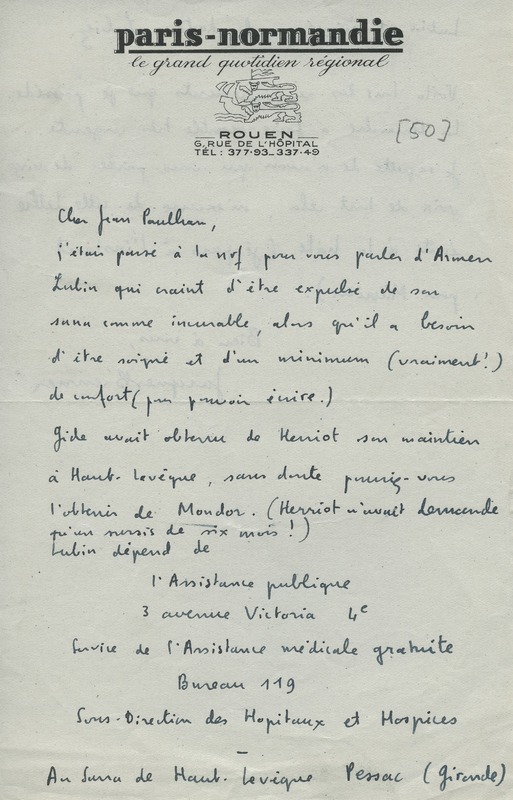 paris-normandie
le grand quotidien régional
ROUEN
6, RUE DE L'HÔPITAL
TÉL : 377-93_337-49
[50]
Cher Jean Paulhan,
j'étais passé à la nrf pour vous parler d'Armen
Lubin qui craint d'être expulsé de son
sana comme incurable, alors qu'il a besoin
d'être soigné et d'un minimum (vraiment!)
de confort (pour pouvoir écrire.)
Gide avait obtenu de Herriot son maintien
à Haut-Levêque, sans doute pourriez-vous
l'obtenir de Mondor. (Herriot n'avait demandé
qu'un sursis de six mois!)
Lubin dépend de
l'Assistance publique
3 avenue Victoria 4e
Service de l'Assistance médicale gratuite
Bureau 119
Sous-Direction des Hopitaux et Hospices
–
Au Sana de Haut-Levêque Pessac (Gironde)